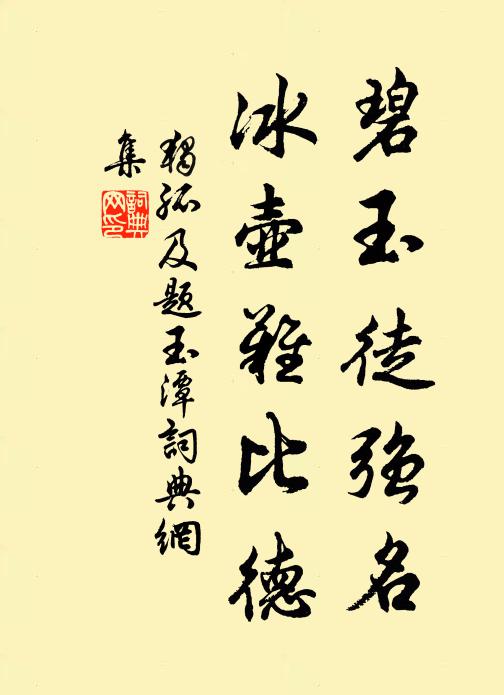 碧玉徒強名
冰壺難比德
獨孤及題玉潭詞典網
集
詞典網印